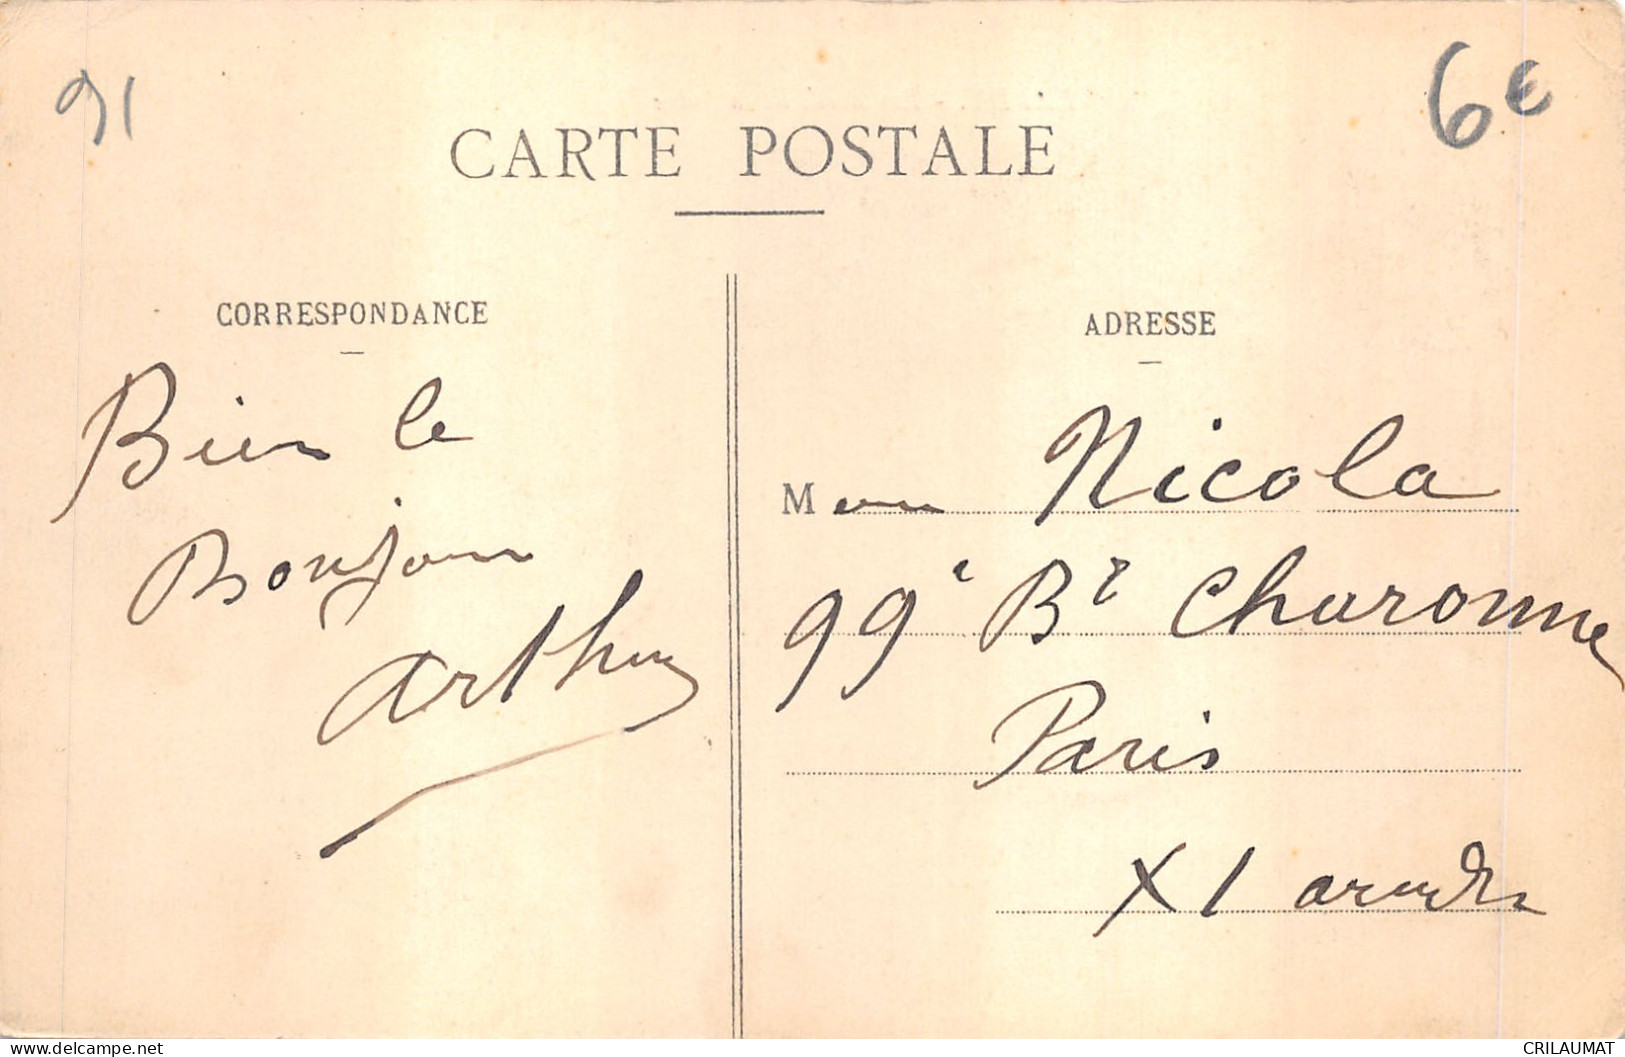 91
6€
CARTE POSTALE
CORRESPONDANCE
Bien le
Bonjour
Arthur
ADRESSE
M Nicola
99 Bd Charonne
Paris
XI arondr
CRILAUMAT